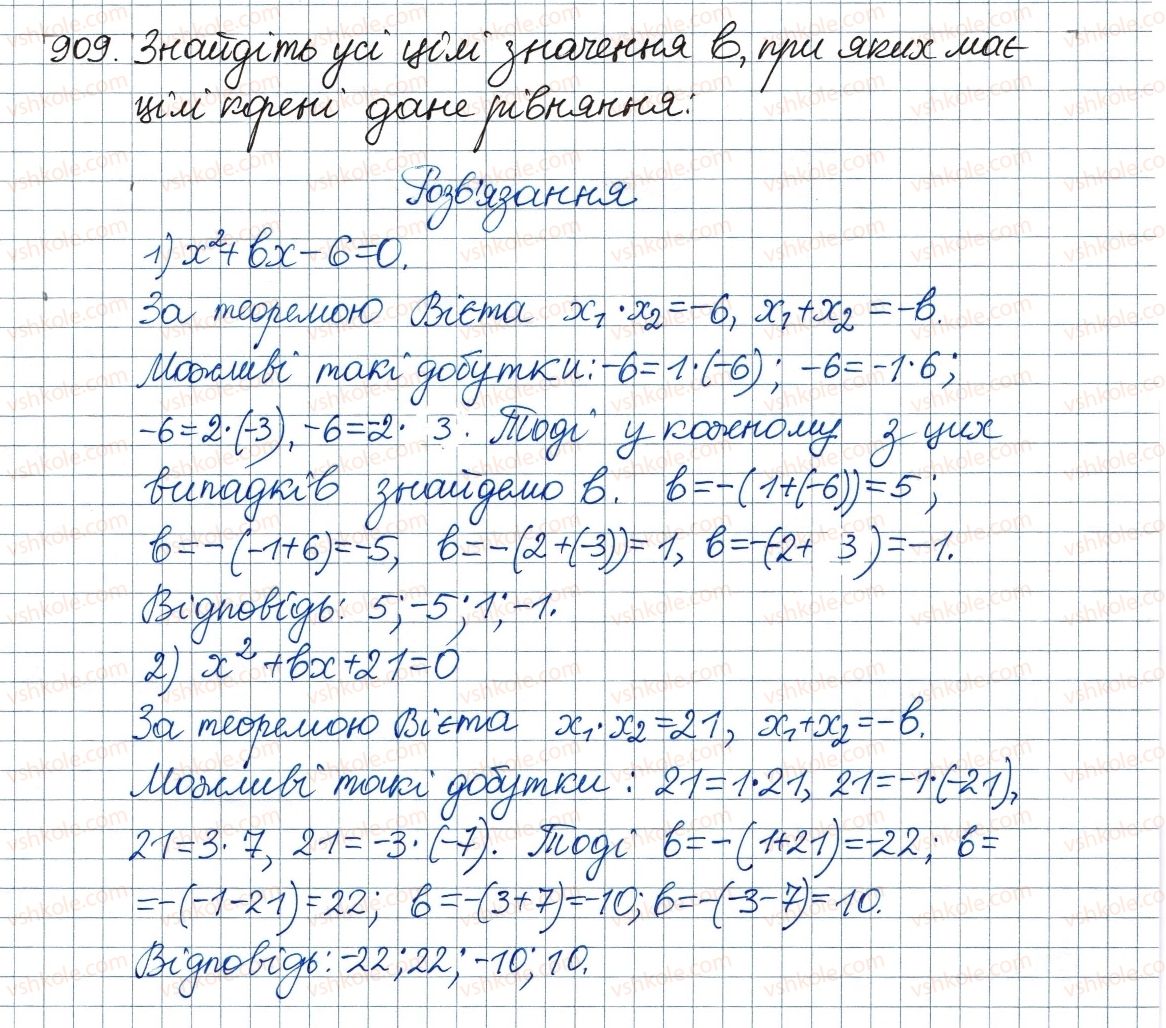 909. Знайдіть усі цілі значення b, при яких має
цілі корені дане рівняння:
Розв'язання
1) x²+bx-6=0.
За теоремою Вієта x₁·x₂=-6, x₁+x₂=-b.
Можливі такі добутки: -6=1·(-6); -6=-1·6;
-6=2·(-3), -6=-2· 3. Тоді у кожному з цих
випадків знайдемо b. b=-(1+(-6))=5;
b=-(-1+6)=-5, b=-(2+(-3))=1, b=-(-2+ 3)=-1.
Відповідь: 5; -5; 1; -1.
2) x²+bx+21=0
За теоремою Вієта x₁·x₂=21, x₁+x₂=-b.
Можливі такі добутки: 21=1·21, 21=-1·(-21),
21=3·7, 21=-3·(-7). Тоді b=-(1+21)=-22; b=
=-(-1-21)=22; b=-(3+7)=-10; b=-(-3-7)=10.
Відповідь: -22; 22; -10; 10.